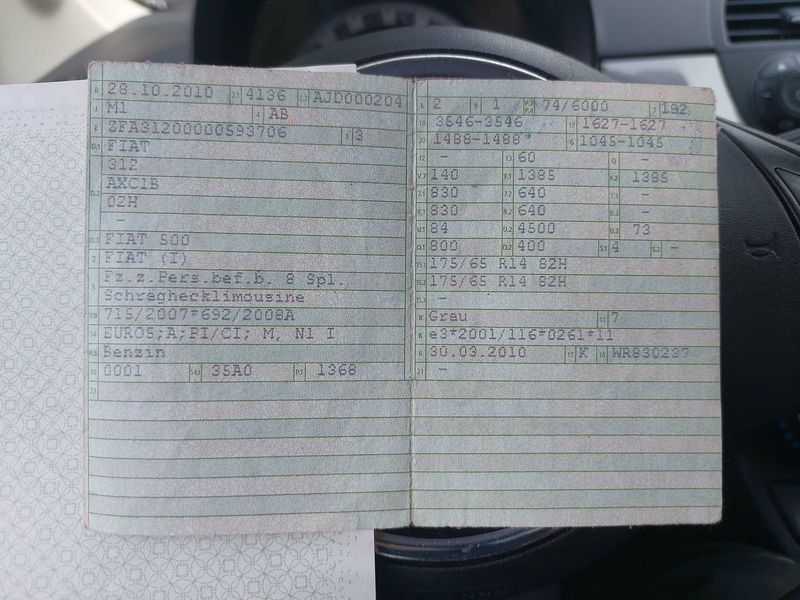 B 28.10.2010 2.1 4136 2.2 AJD000204
J M1 4 AB
E ZFA31200000593706 3 3
D.1 FIAT
312
D.2 AXC1B
02H
-
D.3 FIAT 500
2 FIAT (I)
5 Fz.z.Pers.bef.b. 8 Spl.
Schräghecklimousine
V.9 715/2007*692/2008A
14 EURO5;A;PI/CI; M, N1 I
P.3 Benzin
10 0001 14.1 35A0 P.1 1368
22
L 2 9 1 P.2 P.4 74/6000 T 182
18 3546-3546 19 1627-1627
20 1488-1488 G 1045-1045
12 - 13 60 Q -
V.7 140 F.1 1385 F.2 1385
7.1 830 7.2 640 7.3 -
8.1 830 8.2 640 8.3 -
U.1 84 U.2 4500 U.3 73
O.1 800 O.2 400 S.1 4 S.2 -
15.1 175/65 R14 82H
15.2 175/65 R14 82H
15.3 -
R Grau 11 7
K e3*2001/116*0261*11
6 30.03.2010 17 K 16 WR830237
21 -